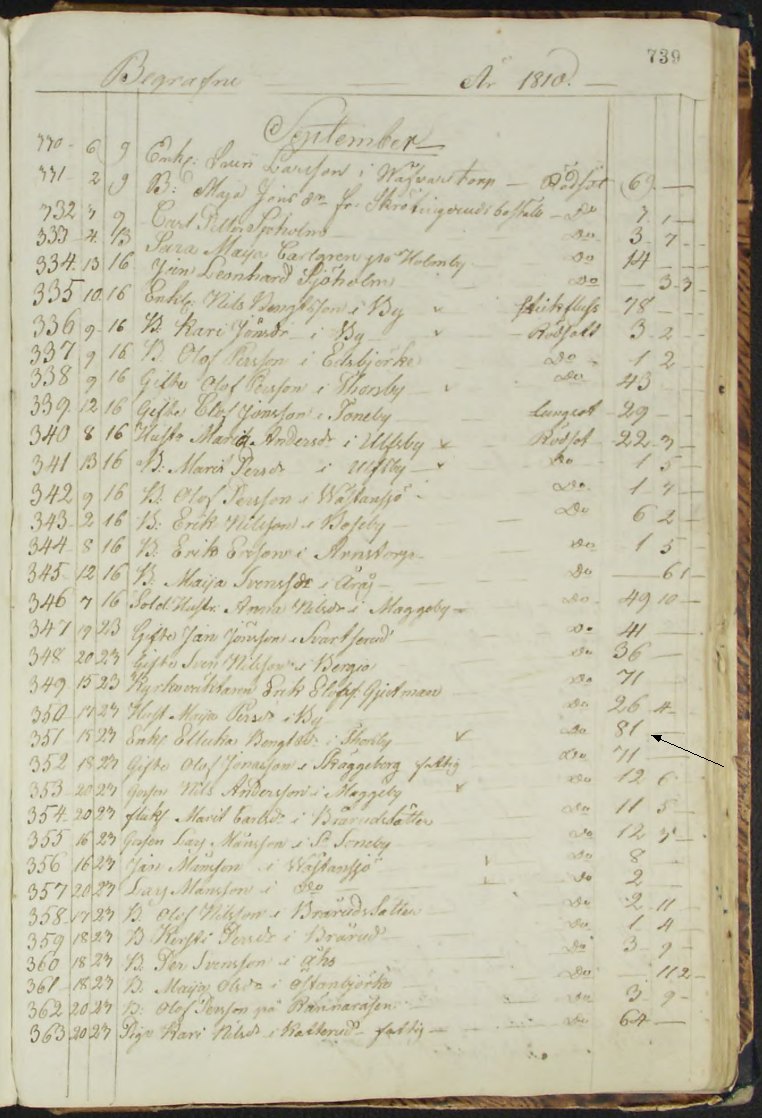 739
Begrafne År 1810.
September
330 6 9 Enkl: Sven Larsson i torp Rödsot 69
331 2 9 B: Maja Jöns Dr fr. Do 3 1
332 3 9 Carl Petter Sjöholm Do 3 7
333 4 13 Sara Maja Carlgren på Holmby Do 14
334 13 16 Jan Leonhard Sjöholm Do 3 3
335 10 16 Enkl: Nils Bengtsson i By 78
336 9 16 B. Kari Jönsdr i By Rödsot 3 2
337 9 16 B. Olof Persson i Edsbjörke Do 1 2
338 9 16 Gifte Olof Persson i Thorsby Do 43
339 12 16 Gifte Elof Jönsson i Toneby Lungsot 29
340 8 16 Hustr Marit Andersdr i Ulfsby Rödsot 22 3
341 13 16 B. Marit Persdr i Ulfsby Do 1 5
342 9 16 B. Olof Persson i Wästansjö Do 1 4
343 2 16 B. Erik Nilsson i Boseby Do 6 2
344 8 16 B. Erik Ersson i Arnstorp Do 1 5
345 12 16 B. Maija Svensdr i Do 61
346 7 16 Sold. Hustr. Anna Nilsdr i Maggeby Do 49 10
347 19 23 Gifte Jan Jönsson i Svartserud Do 41
348 20 23 Gifte Sven Nilsson i Berga Do 36
349 15 23 Kyrkovaktaren Erik Elofss. Do 71
350 17 23 Hust. Maija Persdr i By Do 26 4
351 18 23 Enkl Bengtsdr i Thorsby Do 81
352 18 23 Gifte Olof Jonasson i Skaggeberg fattig Do 71
353 20 23 Gossen Nils Andersson i Maggeby Do 12 6
354 20 23 Marit Carlsdr i Brärudsätter Do 11 5
355 16 23 Gossen Lars Månsson i Toneby Do 12 3
356 16 23 Jan Månsson i Wästansjö Do 8
357 20 23 Lars Månsson i Do Do 2
358 17 23 B Olof Nilsson i Brärudsätter Do 2 11
359 18 23 B Kersti Persdr i Brärud Do 1 4
360 18 23 B. Per Svensson i Do 3 9
361 18 23 B. Maija Olsdr i Östanbjörke Do 11 2
362 20 23 B. Olof Persson på Do 3 9
363 20 23 Piga Kari Nilsdr i fattig Do 64